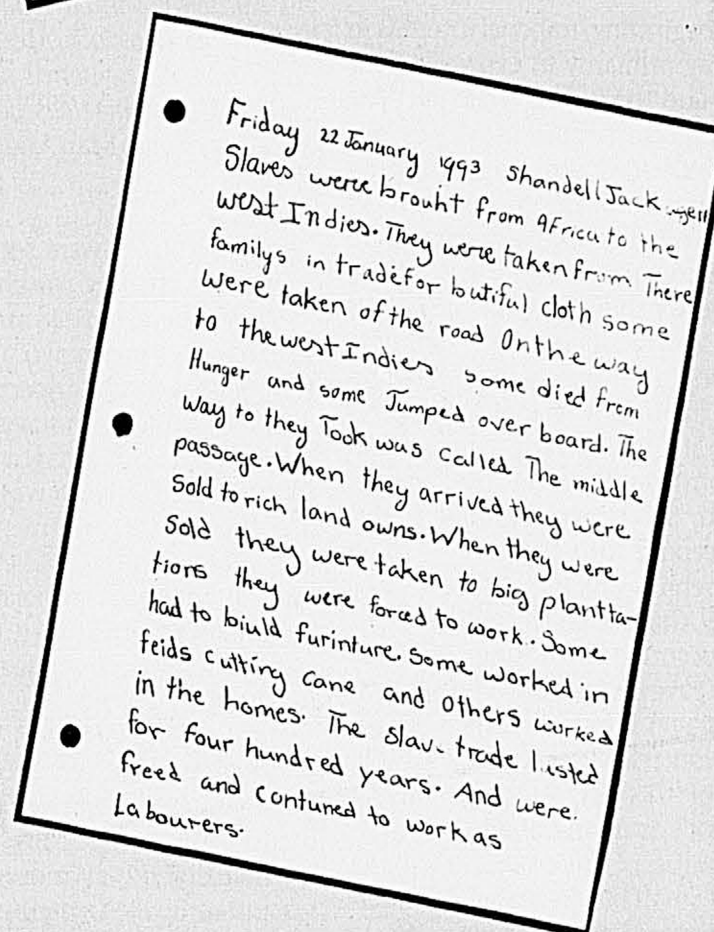 Friday 22 January 1993 Shandell Jack
Slaves were brouht from Africa to the
west Indies. They were taken from There
familys in trade for butiful cloth some
were taken of the road On the way
to the west Indies some died from
Hunger and some Jumped over board. The
way to they Took was called The middle
passage. When they arrived they were
Sold to rich land owns. When they were
Sold they were taken to big plantta-
tions they were forced to work. Some
had to biuld furinture. Some worked in
feids cutting cane and others worked
in the homes. The slav. trade listed
for four hundred years. And were.
freed and contuned to work as
Labourers.